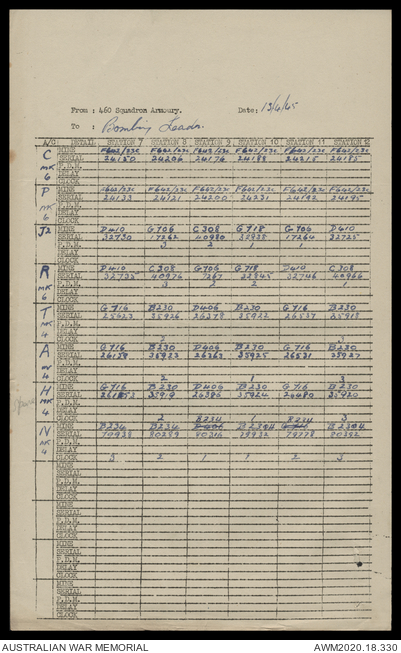 From : 460 Squadron Armoury. Date: 13/4/45
To : Bombing Leader.
A/C DETAIL STATION 7 STATION 8 STATION 9 STATION 10 STATION 11 STATION 12
C MINE F642/230 F642/230 F642/230 F642/230 F642/230 F642/230
MK 6 SERIAL 24180 24206 24176 24188 24215 24185
P.D.M.
DELAY
CLOCK
P MINE F642/230 F642/230 F642/230 F642/230 F642/230
MK 6 SERIAL 24133 24121 24200 24231 24192 24195
P.D.M.
DELAY
CLOCK
J2 MINE D410 G706 C308 G718 G706 D410
SERIAL 32730 17262 40980 32938 17264 32725
P.D.M. 3 2 1
DELAY
CLOCK
R MINE D410 C308 G706 G718 D410 C308
MK 6 SERIAL 32735 40976 7267 32845 32746 40966
P.D.M. 3 2 2 1
DELAY
CLOCK
T MINE G716 B230 D406 B230 G716 B230
MK 4 SERIAL 25623 35926 26378 35922 26537 35918
P.D.M.
DELAY
CLOCK 2 1 3
A MINE G716 B230 D406 B230 G716 B230
MK 4 SERIAL 26159 35923 26363 35925 26531 35927
P.D.M.
DELAY
CLOCK 2 1 3
H MINE G716 B230 D406 B230 G716 B230
MK 4 SERIAL 35919 26386 35924 26480 35920
Spare P.D.M.
DELAY
CLOCK 2 1 3
B234 B234
N MINE B234 B234 D406 B234 B234
MK 4 SERIAL 79938 80289 80316 79932 79778 80302
P.D.M.
DELAY
CLOCK 3 2 1 1 2 3
MINE
SERIAL
P.D.M.
DELAY
CLOCK
MINE
SERIAL
P.D.M.
DELAY
CLOCK
MINE
SERIAL
P.D.M.
DELAY
CLOCK
MINE
SERIAL
P.D.M.
DELAY
CLOCK
AUSTRALIAN WAR MEMORIAL AWM2020.18.330